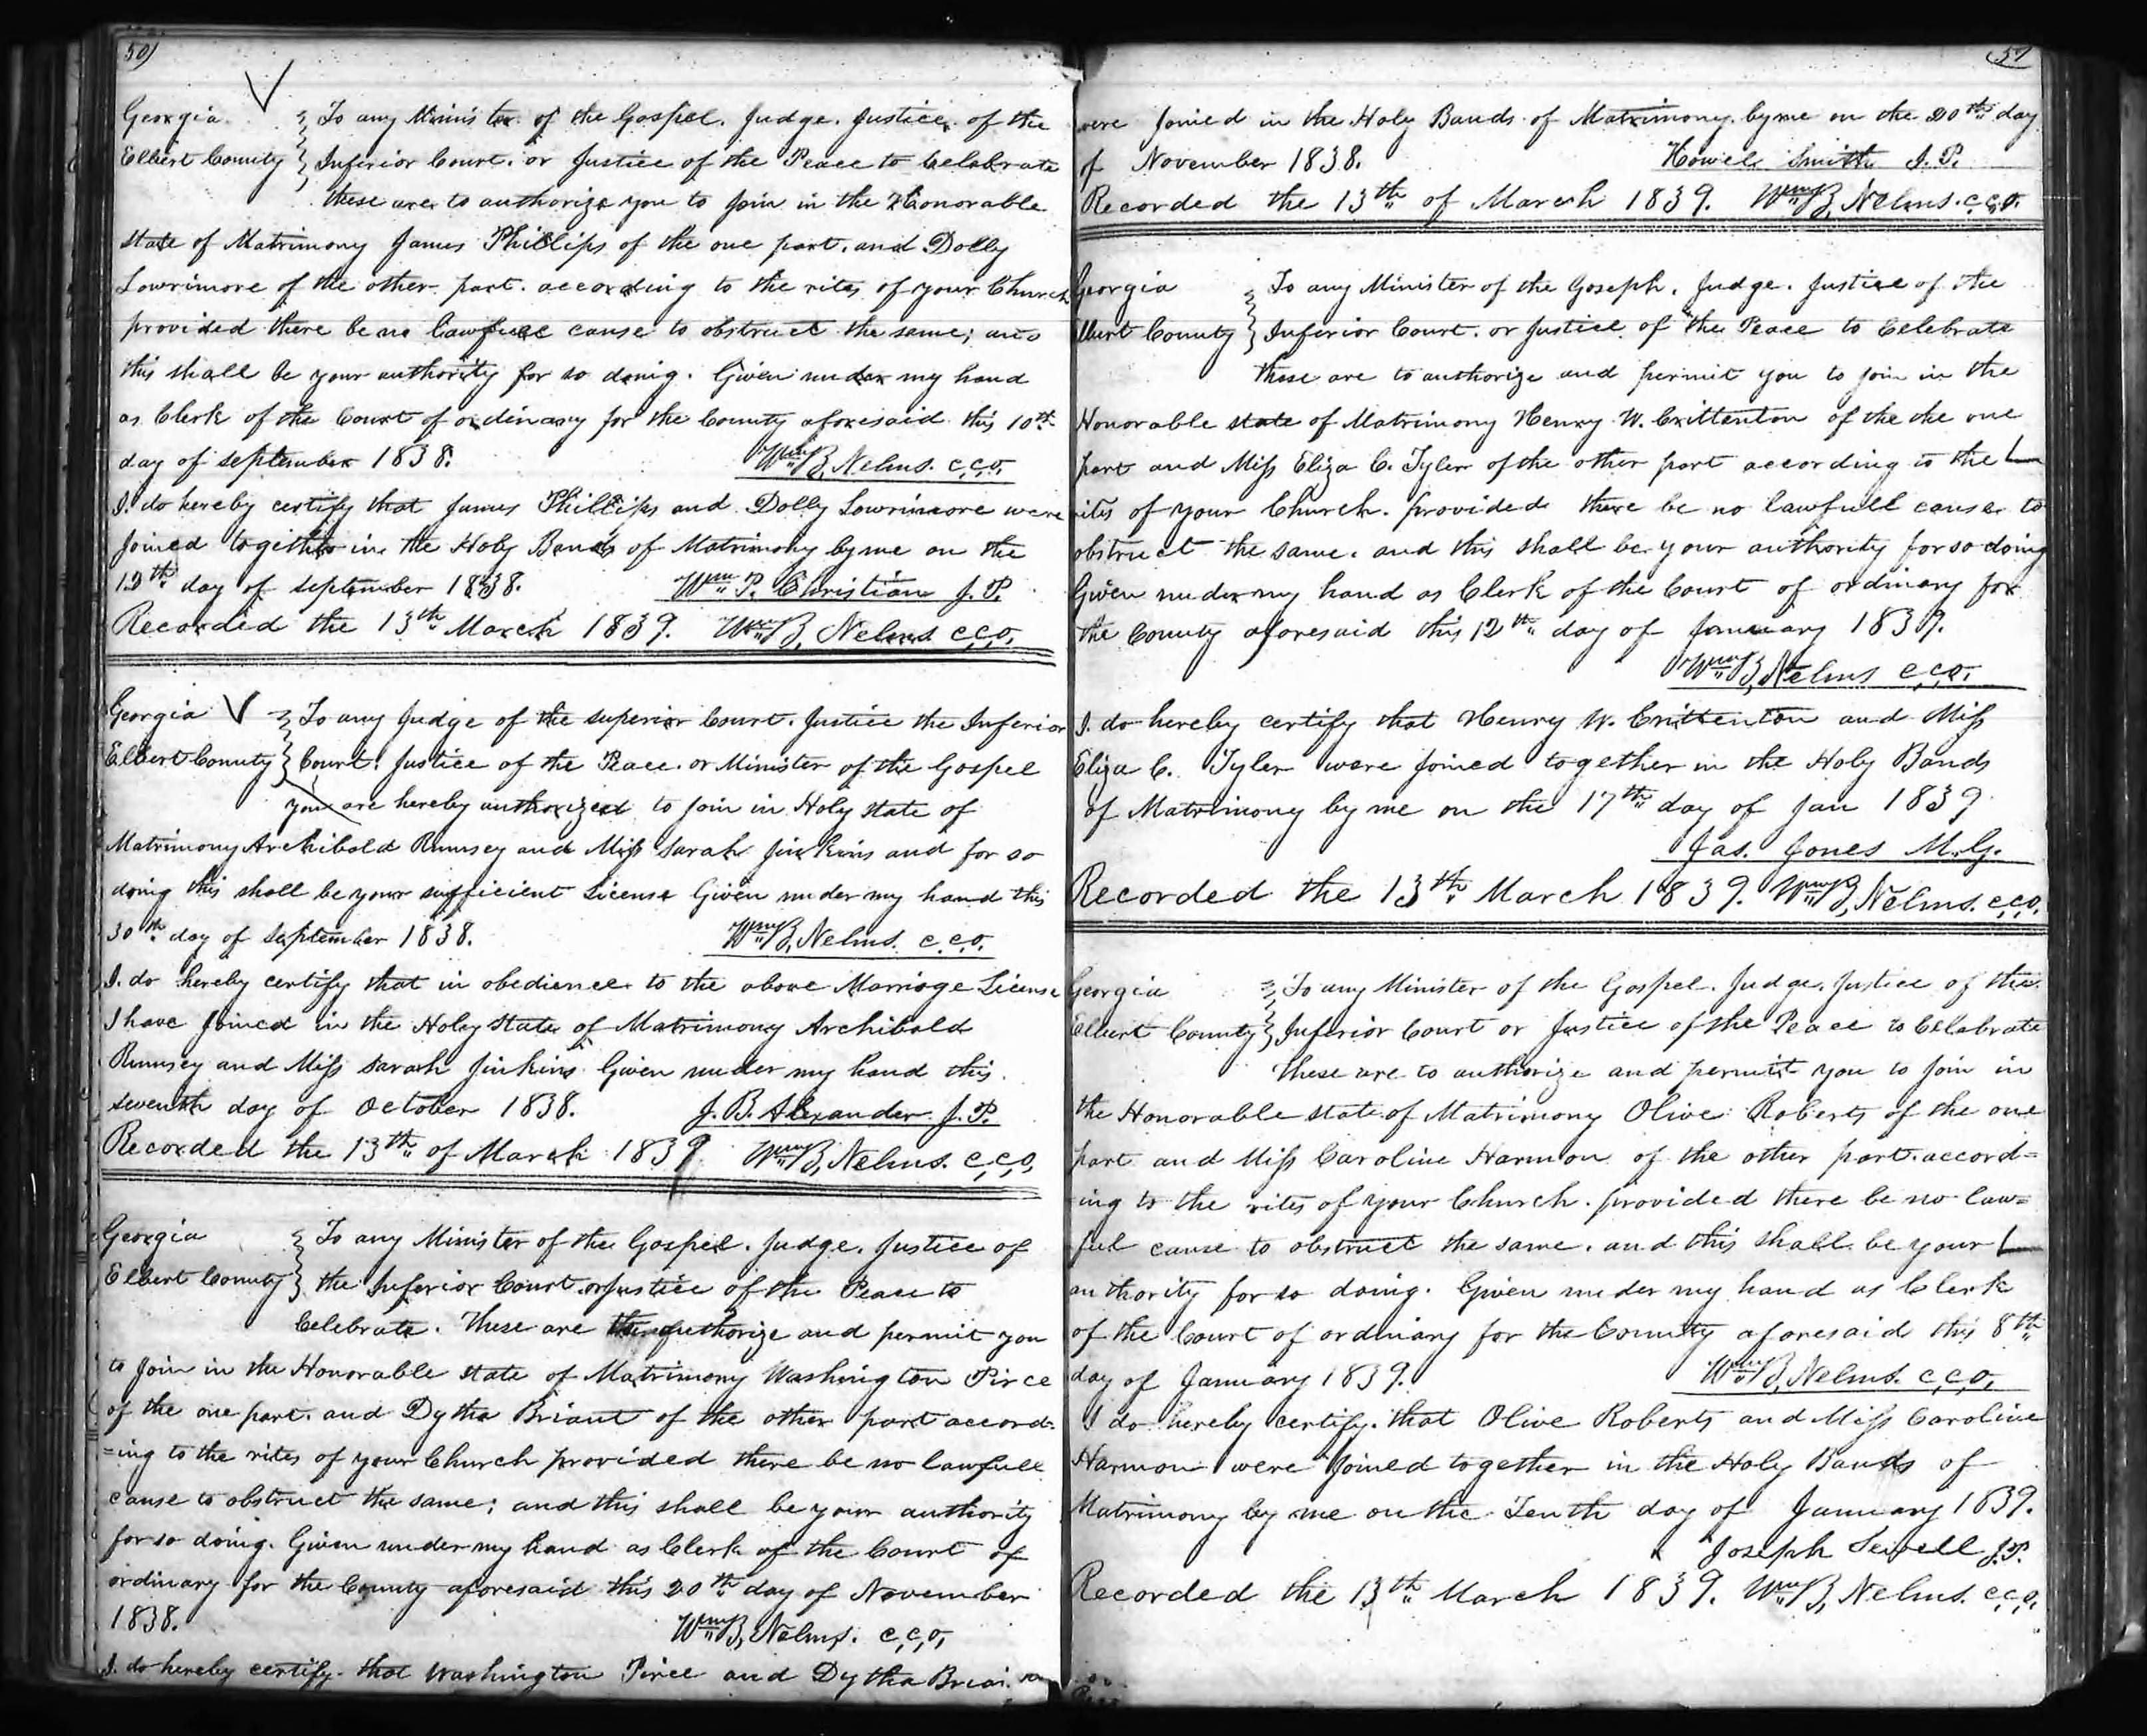 50)
Georgia. To any Minister of the Gospel. Judge. Justice of the
Elbert County Inferior Court. or Justice of the Peace to Celebrate
these are to authorize you to Join in the Honorable
state of Matrimony James Phillips of the one part. and Dolly
Lowrimore of the other part. according to the rites of your Church
provided there be no lawfull cause to obstruct the same; and
this shall be your authority for so doing. Given under my hand
as Clerk of the Court of ordinary for the County aforesaid this 10th
day of september 1838. Wm B, Nelms. c,c,o,
I. do hereby certify that James Phillips and Dolly Lowrimore were
Joined together in the Holy Bands of Matrimony by me on the
12th day of september 1838. Wm P. Christian J. P.
Recorded the 13th March 1839. Wm B, Nelms c,c,o,
Georgia To any Judge of the superior Court. Justice the Inferior
Elbert County Court. Justice of the Peace. or Minister of the Gospel
you are hereby authorized to Join in Holy state of
Matrimony Archibold Rumsey and Miss Sarah Jinkins and for so
doing this shall be your sufficient License Given under my hand this
30th day of September 1838. Wm B, Nelms. c,c,o,
I. do hereby certify that in obedience to the above Marriage License
I have Joined in the Holy state of Matrimony Archibold
Rumsey and Miss Sarah Jinkins Given under my hand this
seventh day of October 1838. J. B. Alexander J. P.
Recorded the 13th of March 1839 Wm B, Nelms. c,c,o,
Georgia To any Minister of the Gospel. Judge. Justice of
Elbert County the Inferior Court or Justice of the Peace to
Celebrate. These are authorize and permit you
to Join in the Honorable state of Matrimony Washington Pirce
of the one part. and Dytha Briant of the other part accord-
=ing to the rites of your Church provided there be no lawfull
cause to obstruct the same; and this shall be your authority
for so doing. Given under my hand as Clerk of the Court of
ordinary for the County aforesaid this 20th day of November
1838. Wm B, Nelms. c,c,o,
I. do hereby certify that Washington Pirce and Dytha
51
were Joined in the Holy Bands of Matrimony by me on the 20th day
of November 1838. Howel Smith J. P.
Recorded the 13th of March 1839. Wm B, Nelms. c,c,o.
Georgia To any Minister of the Goseph. Judge. Justice of the
Elbert County Inferior Court. or Justice of the Peace to Celebrate
these are to authorize and permit you to Join in the
Honorable state of Matrimony Henry W. Crittenton of the the one
part and Miss Eliza C. Tyler of the other part according to the
rites of your Church. provided there be no lawfull cause to
obstruct the same. and this shall be your authority for so doing
Given under my hand as Clerk of the Court of ordinary for
the County aforesaid this 12th day of January 1839.
Wm B, Nelms c,c,o,
I. do hereby certify that Henry W. Crittenton and Miss
Eliza C. Tyler were Joined together in the Holy Bands
of Matrimony by me on the 17th day of Jan 1839
Jas. Jones M.G.
Recorded the 13th March 1839. Wm B, Nelms. c,c,o.
Georgia To any Minister of the Gospel. Judge. Justice of the
Elbert County Inferior Court or Justice of the Peace to Celebrate
These are to authorize and permit you to Join in
the Honorable state of Matrimony Olive Roberts of the one
part and Miss Caroline Harmon of the other part. accord=
ing to the rites of your Church. provided there be no law=
ful cause to obstruct the same. and this shall be your
authority for so doing. Given under my hand as Clerk
of the Court of ordinary for the County aforesaid this 8th
day of January 1839. Wm B, Nelms. c,c,o,
I do hereby certify. that Olive Roberts and Miss Caroline
Harmon were Joined together in the Holy Bands of
Matrimony by me on the Tenth day of January 1839.
Joseph Sewell J.P.
Recorded the 13th March 1839. Wm B, Nelms. c,c,o,